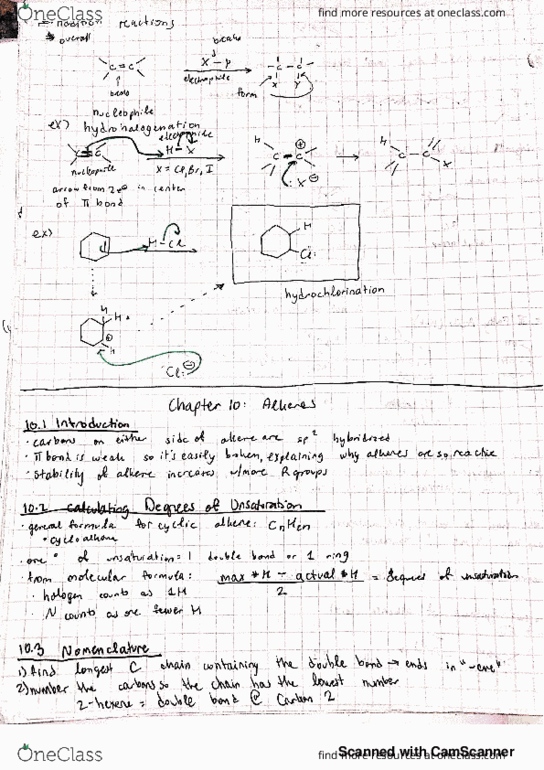 OneClass
find more resources at oneclass.com
addition reactions
overall
breaks
X - Y
C = C
electrophile
- C - C -
X Y
form
bond
nucleophile
ex) hydrohalogenation
electrophile
H - X
nucleophile
X = Cl, Br, I
H
C - C
:X ⊖
H
C - C
X
arrow from 2e⊖ in center
of π bond
ex)
H - Cl
H
Cl:
hydrochlorination
H
H
⊕
H
Cl: ⊖
Chapter 10: Alkenes
10.1 Introduction
· carbons on either side of alkene are sp² hybridized
· π bond is weak so it's easily broken, explaining why alkenes are so reactive
· stability of alkene increases w/more R groups
10.2 calculating Degrees of Unsaturation
· general formula for cyclic alkene: CnH2n
· cycloalkane
· one ° of unsaturation = 1 double bond or 1 ring
· from molecular formula: max #H - actual #H = degrees of unsaturation
2
· halogen counts as 1H
· N counts as one fewer H
10.3 Nomenclature
1) find longest C chain containing the double bond → ends in "-ene"
2) number the carbons so the chain has the lowest number
2-hexene = double bond @ Carbon 2
OneClass
find more resources at oneclass.com
Scanned with CamScanner